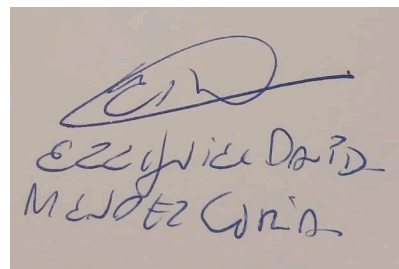 EZEQUIEL DAVID
MENDEZ CORIA